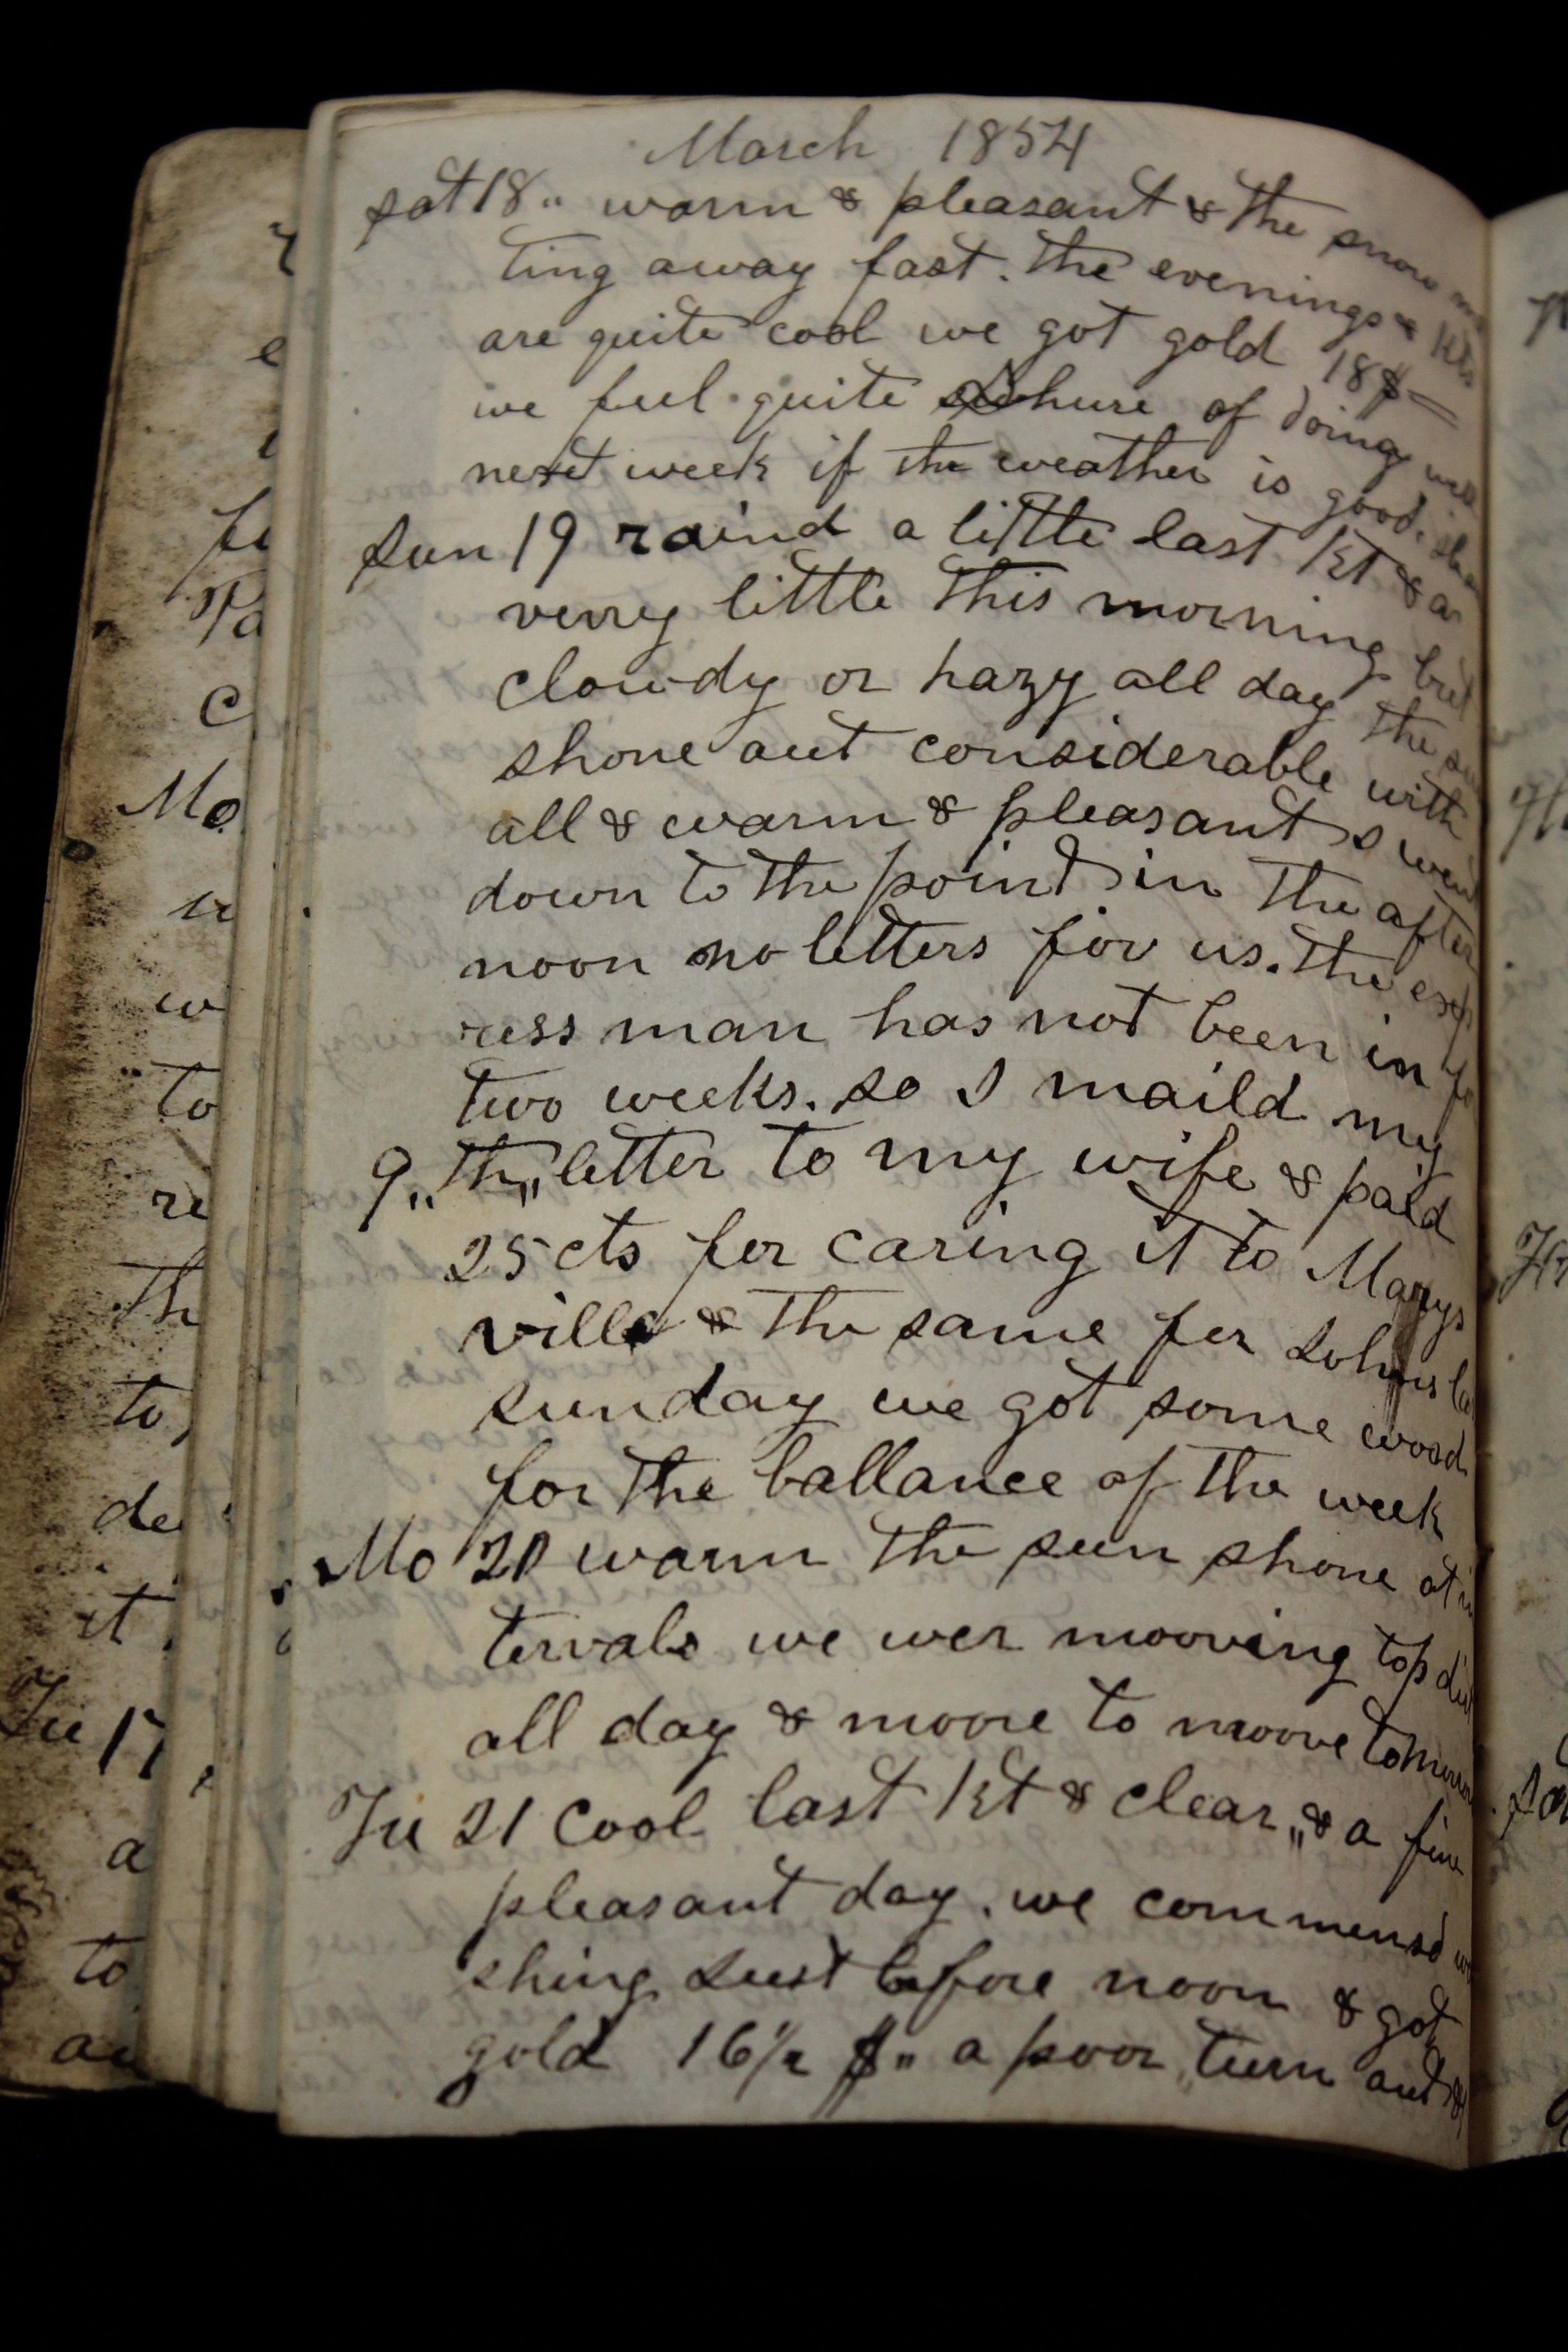 March 1854
sat 18 " warm & pleasant & the snow
ting away fast. the evenings &
are quite cool we got gold 18$ =
we feel quite shure of doing well
next week if the weather is good.
sun 19 raind a little last kt & a
verry little this morning but
clowdy or hazy all day the
shone out considerable with
all & warm & pleasant I went
down to the point in the after
noon no letters for us. the exp
ress man has not been in
two weeks. so I maild my
9 "th" letter to my wife & paid
25 cts for caring it to Marys
ville & the same for Johns
sunday we got some wood
for the ballance of the week
Mo 20 warm the sun shone at in
tervals we wer mooving top dirt
all day & moore to moove tomorrow
Tu 21 Cool last kt & clear " & a fine
pleasant day. we commensd
shing just before noon & got
gold 16 1/2 $ " a poor turn out &
fi
Pa
c
Mo
w
to
re
th
to,
de
it
Tu 17
a
to